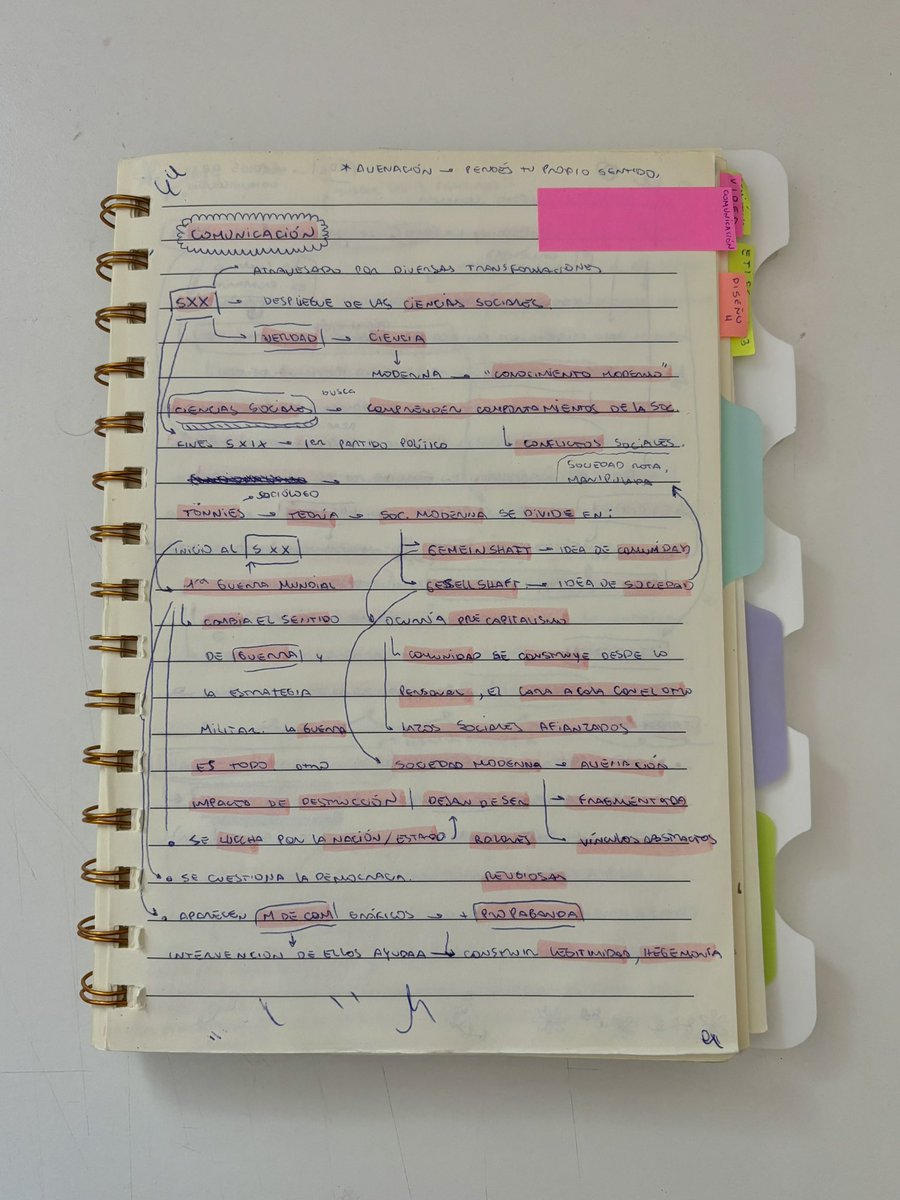 * ALIENACIÓN → PERDÉS TU PROPIO SENTIDO.
COMUNICACIÓN
→ ATRAVESADO POR DIVERSAS TRANSFORMACIONES
SXX → DESPLIEGUE DE LAS CIENCIAS SOCIALES.
→ VERDAD → CIENCIA
↓
MODERNA → "CONOCIMIENTO MODERNO"
busca
CIENCIAS SOCIALES → COMPRENDER COMPORTAMIENTOS DE LA SOC.
FINES SXIX → 1ER PARTIDO POLÍTICO
CONFLICTOS SOCIALES.
SOCIEDAD ROTA,
MANIPULADA
→ SOCIÓLOGO
TÖNNIES → TEORÍA → SOC. MODERNA SE DIVIDE EN:
INICIO AL SXX
→ GEMEINSHAFT → IDEA DE COMUNIDAD
1RA GUERRA MUNDIAL
GESELLSHAFT → IDEA DE SOCIEDAD
CAMBIA EL SENTIDO
OCURRÍA PRE CAPITALISMO
DE GUERRA Y
COMUNIDAD SE CONSTRUYE DESDE LO
LA ESTRATEGIA
PERSONAL, EL CARA A CARA CON EL OTRO
MILITAR. LA GUERRA
LAZOS SOCIALES AFIANZADOS
ES TODO OTRO
SOCIEDAD MODERNA → ALIENACIÓN
IMPACTO DE DESTRUCCIÓN
DEJAN DE SER
→ FRAGMENTADA
• SE LUCHA POR LA NACIÓN/ESTADO
VALORES
VÍNCULOS ABSTRACTOS
• SE CUESTIONA LA DEMOCRACIA.
RELIGIOSAS
• APARECEN M DE COM GRÁFICOS → + PROPAGANDA
↓
INTERVENCIÓN DE ELLOS AYUDAA → CONSTRUIR LEGITIMIDAD, HEGEMONÍA
COMUNICACIÓN
DISEÑO 4